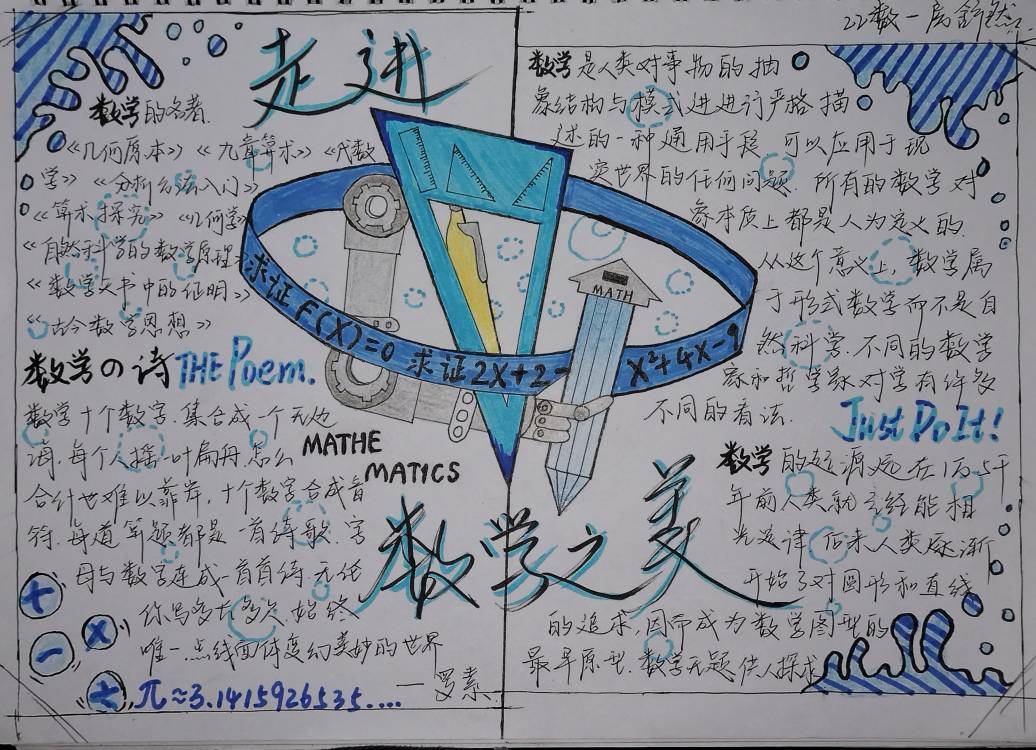 22数一
走进
数学的名著.
《几何原本》《九章算术》《代数
学》《分析方法入门》
《算术探究》《几何学》
《自然科学的数学原理》
《数学天书中的证明》
《古今数学思想》
数学の诗 THE Poem.
数学十个数字.集合成一个无边
海.每个人摇一叶扁舟.怎么
合计也难以靠岸,十个数字合成音
符.每道算题都是一首诗歌.字
母与数字连成一首首诗.无论
你写多大多久.始终
唯一点线面体变幻美妙的世界
—罗素.
π≈3.1415926535....
求证 F(X)=0 求证2X+2=
X²+4X-9
MATH
MATHE
MATICS
数学之美
数学是人类对事物的抽
象结构与模式进进行严格描
述的一种通用手段 可以应用于现
实世界的任何问题.所有的数学对
象本质上都是人为定义的.
从这个意义上,数学属
于形式数学而不是自
然科学.不同的数学
家和哲学家对学有许多
不同的看法.
Just Do It!
数学的起源远在1万5千
年前人类就已经能相
当 律 后来人类逐渐
开始了对圆形和直线
的追求,因而成为数学图型的
最早原型.数学无题使人探求